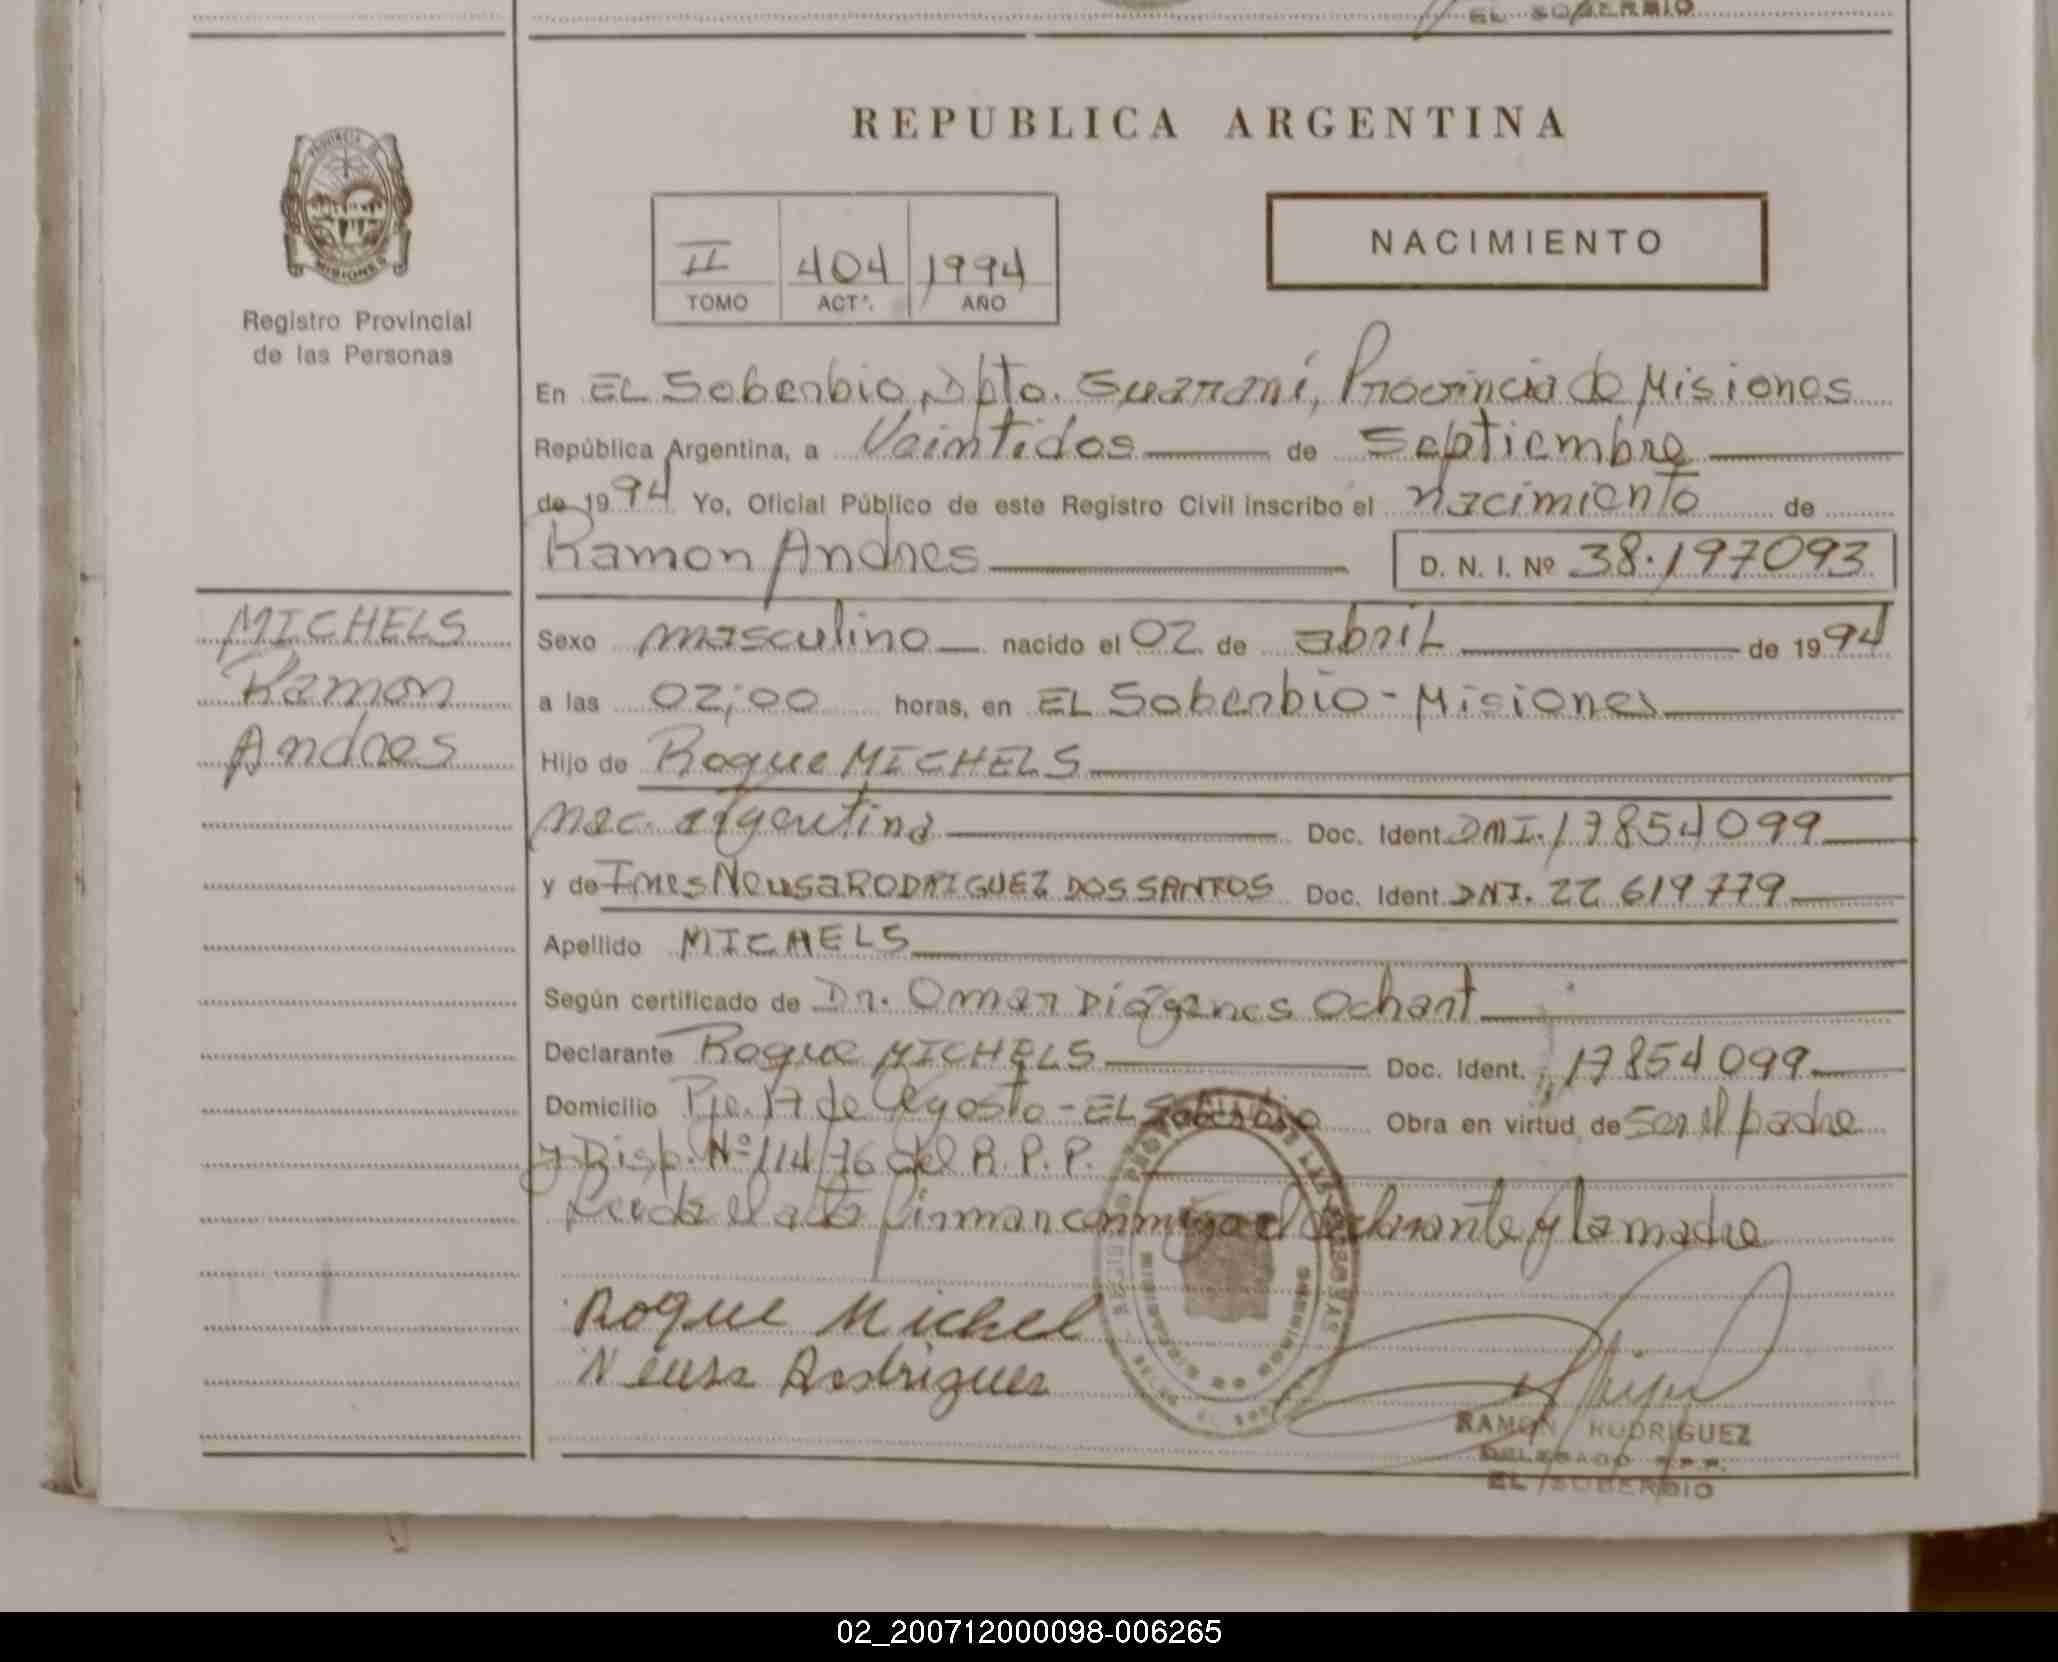 EL SOBERBIO
REPUBLICA ARGENTINA
PROVINCIA DE
MISIONES
Registro Provincial
de las Personas
II 404 1994
TOMO ACTª. AÑO
NACIMIENTO
En EL Soberbio, Dpto. Guaraní, Provincia de Misiones
República Argentina, a Veintidos de Septiembre
de 1994 Yo, Oficial Público de este Registro Civil inscribo el nacimiento de
Ramon Andres D. N. I. Nº 38.197093
MICHELS
Ramon
Andres
Sexo masculino nacido el 02 de abril de 1994
a las 02;00 horas, en EL Soberbio - Misiones
Hijo de Roque MICHELS
nac. argentina Doc. Ident. DNI. 17854099
y de Ines Neusa RODRIGUEZ DOS SANTOS Doc. Ident. DNI. 22 619779
Apellido MICHELS
Según certificado de Dr. Omar Diógenes Ochant
Declarante Roque MICHELS Doc. Ident. 17854099
Domicilio Pje. 17 de Agosto - EL Soberbio Obra en virtud de Ser el padre
y Disp. Nº 114/76 del R. P. P.
Leida el acta firman conmigo el declarante y la madre
Roque Michel
Neusa Rodriguez
RAMON RODRIGUEZ
DELEGADO R.P.P.
EL SOBERBIO
02_200712000098-006265